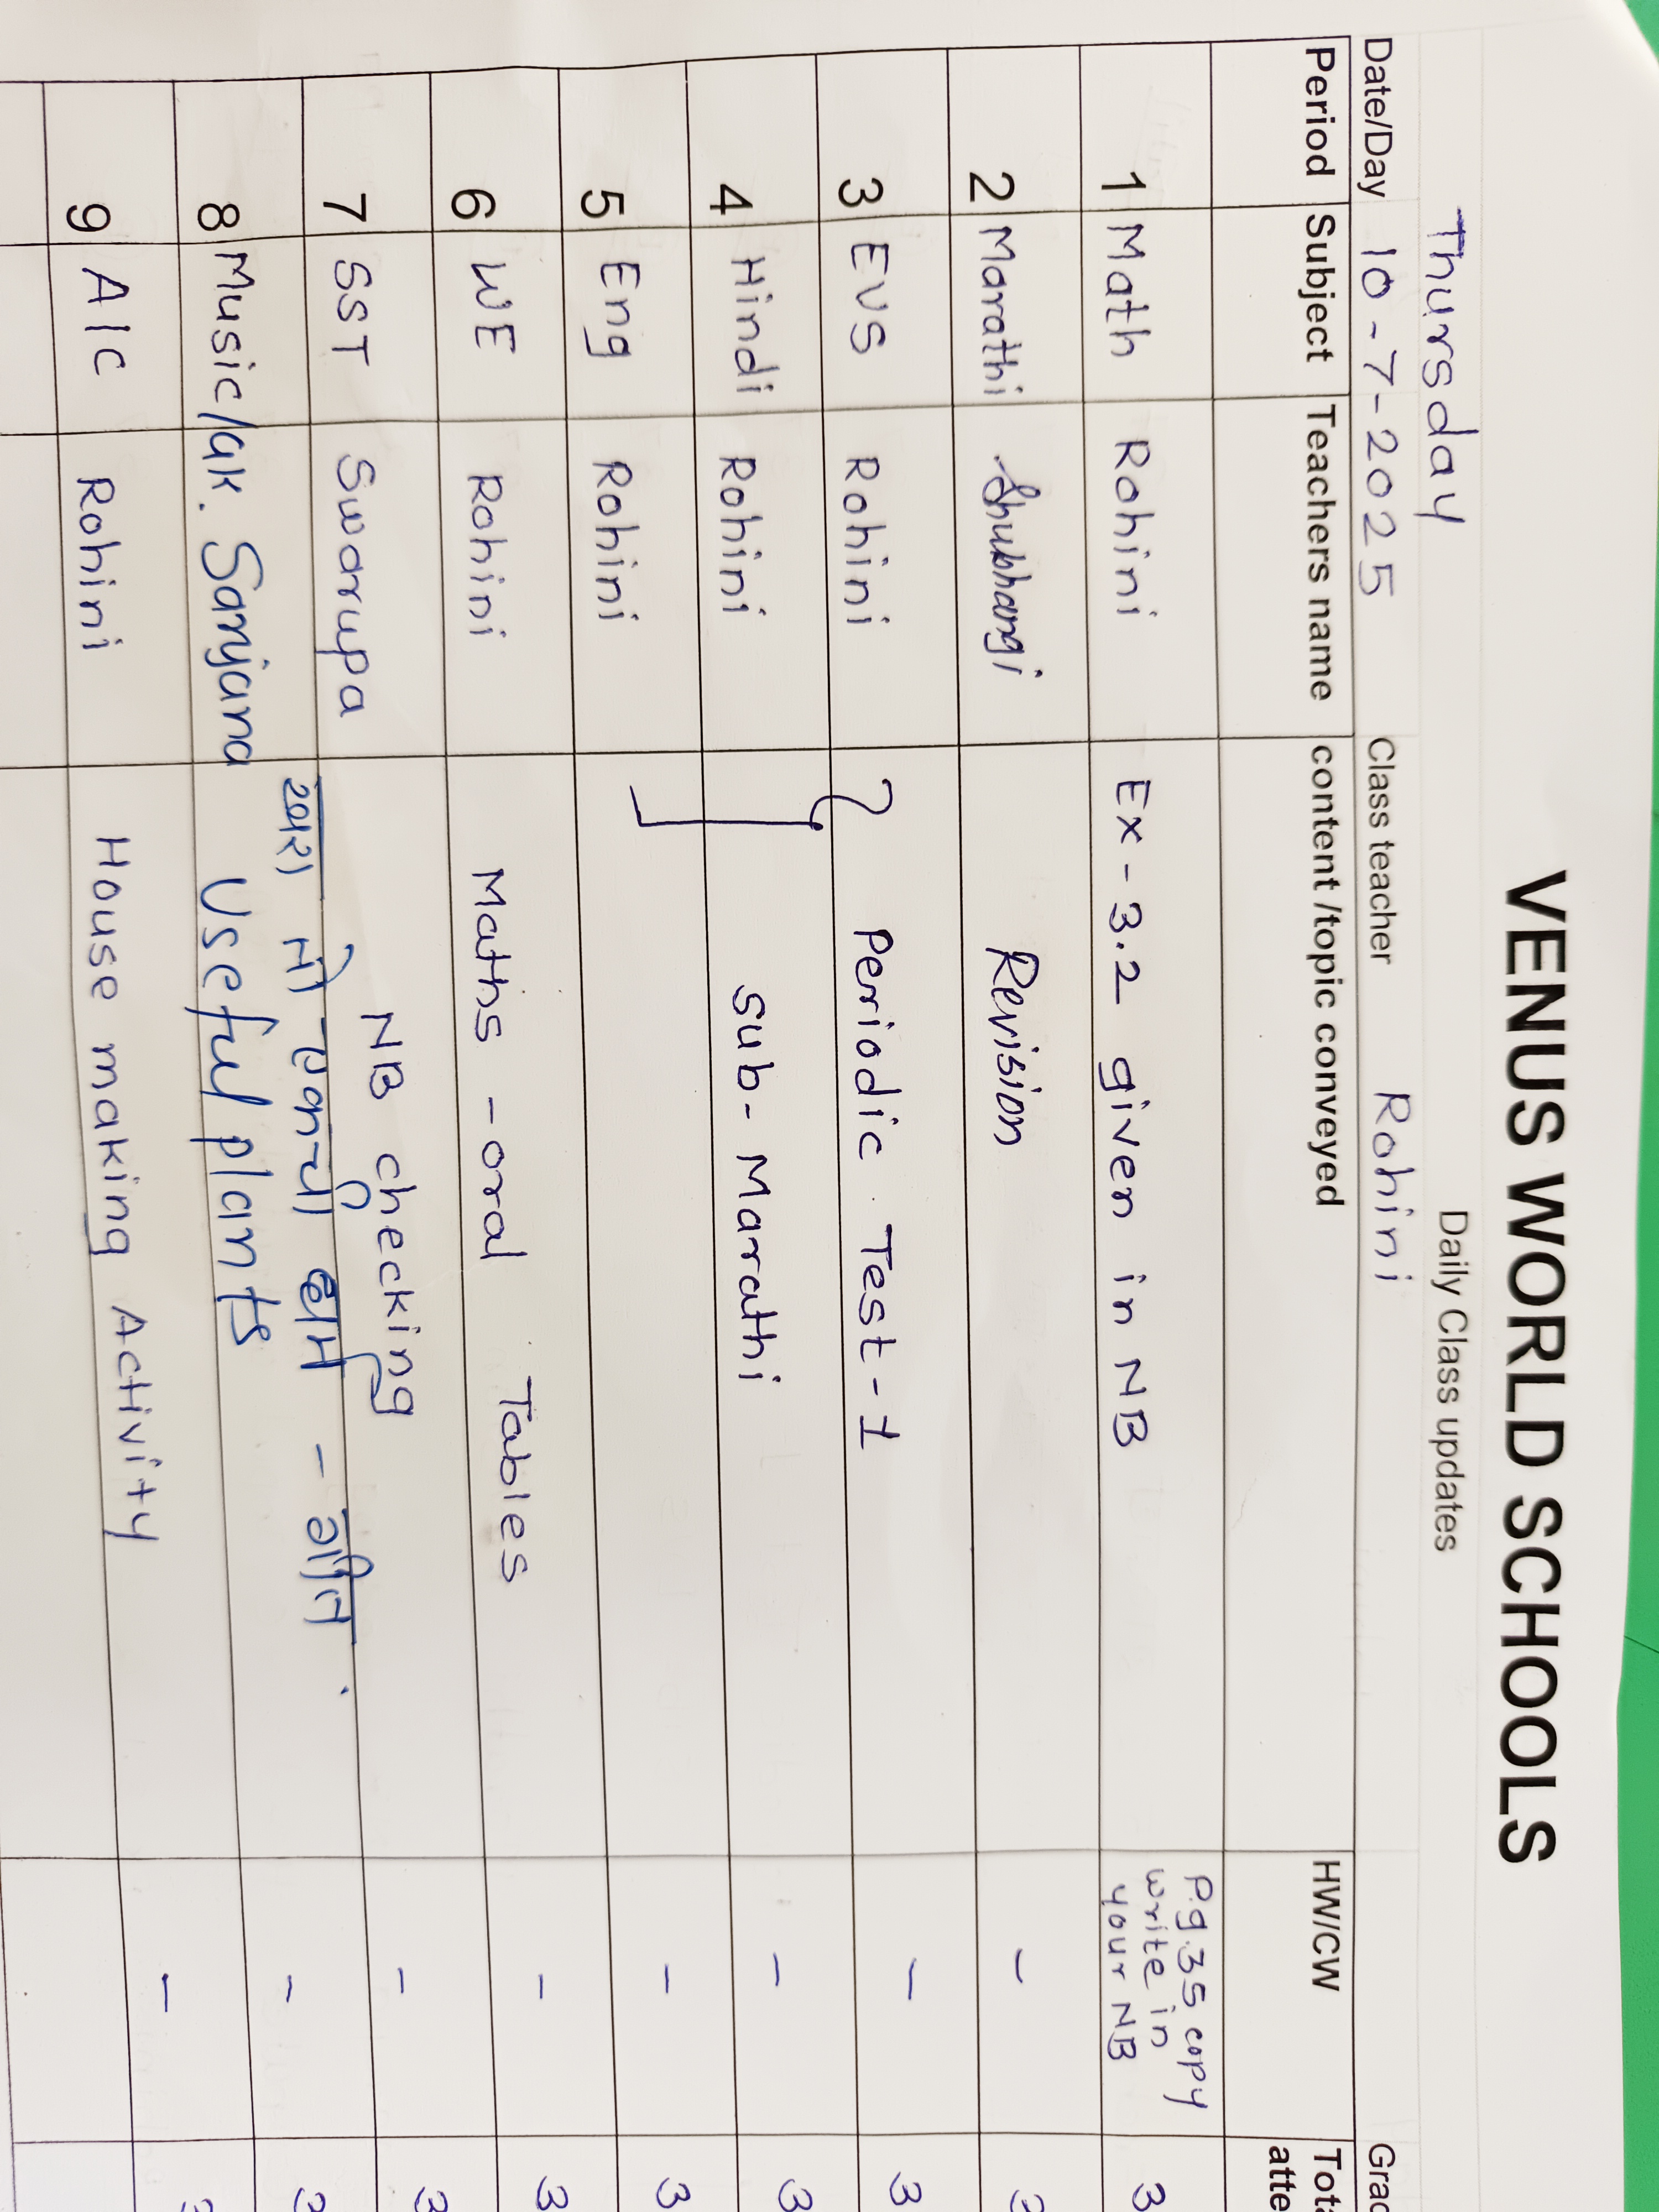 VENUS WORLD SCHOOLS
Daily Class updates
Thursday
Date/Day 10-7-2025 Class teacher Rohini
Period Subject Teachers name content /topic conveyed HW/CW
1 Math Rohini Ex - 3.2 given in NB P.g.35 copy write in your NB 3
2 Marathi Shubhangi Revision -
3 EVS Rohini Periodic Test - 1 - 3
4 Hindi Rohini Sub - Marathi - 3
5 Eng Rohini - 3
6 WE Rohini Maths - oral Tables - 3
7 SST Swarupa NB checking - 3
8 Music/GK. Sanjana Useful plants -
9 A/C Rohini House making Activity -